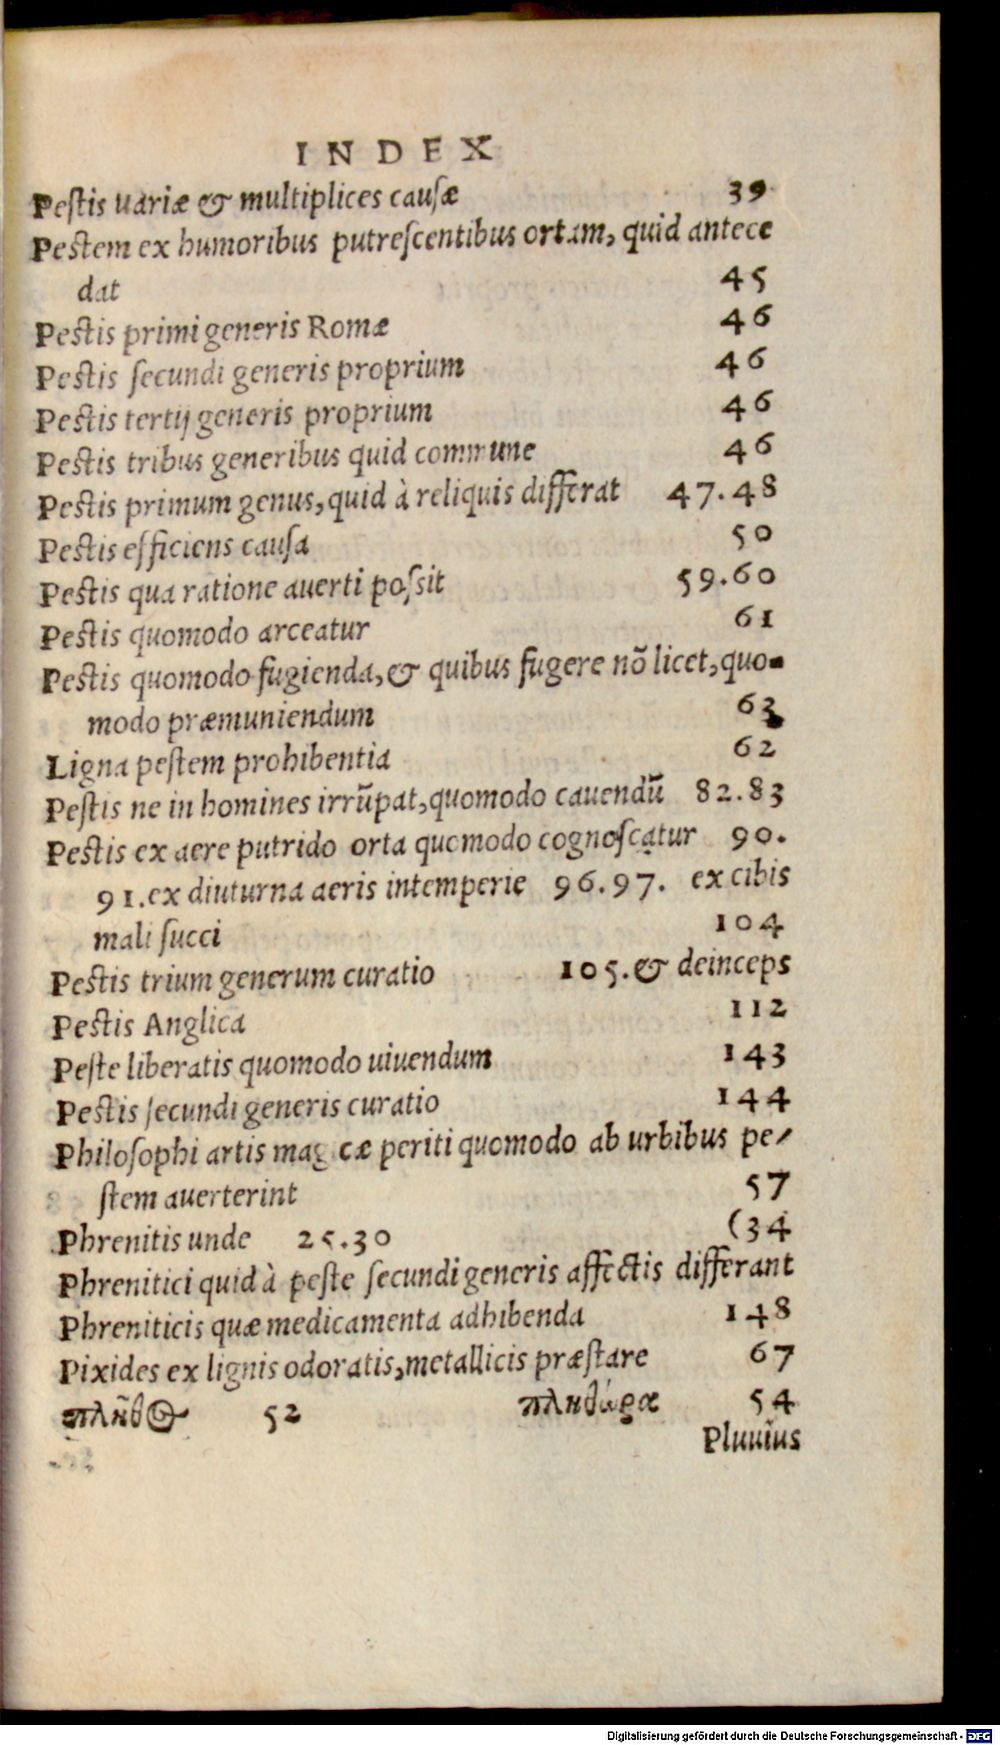 INDEX
Pestis uariæ & multiplices causæ 39
Pestem ex humoribus putrescentibus ortam, quid antece
dat 45
Pestis primi generis Romæ 46
Pestis secundi generis proprium 46
Pestis tertij generis proprium 46
Pestis tribus generibus quid commune 46
Pestis primum genus, quid à reliquis differat 47.48
Pestis efficiens causa 50
Pestis qua ratione auerti possit 59.60
Pestis quomodo arceatur 61
Pestis quomodo fugienda, & quibus fugere nõ licet, quo-
modo præmuniendum 63
Ligna pestem prohibentia 62
Pestis ne in homines irrũpat, quomodo cauendũ 82.83
Pestis ex aere putrido orta quomodo cognoscatur 90.
91. ex diuturna aeris intemperie 96.97. ex cibis
mali succi 104
Pestis trium generum curatio 105. & deinceps
Pestis Anglica 112
Peste liberatis quomodo uiuendum 143
Pestis secundi generis curatio 144
Philosophi artis magicæ periti quomodo ab urbibus pe-
stem auerterint 57
Phrenitis unde 25.30 (34
Phrenitici quid à peste secundi generis affectis differant
Phreniticis quæ medicamenta adhibenda 148
Pixides ex lignis odoratis, metallicis præstare 67
πλῆθος 52 πληθώρα 54
Pluuius
Digitalisierung gefördert durch die Deutsche Forschungsgemeinschaft - DFG